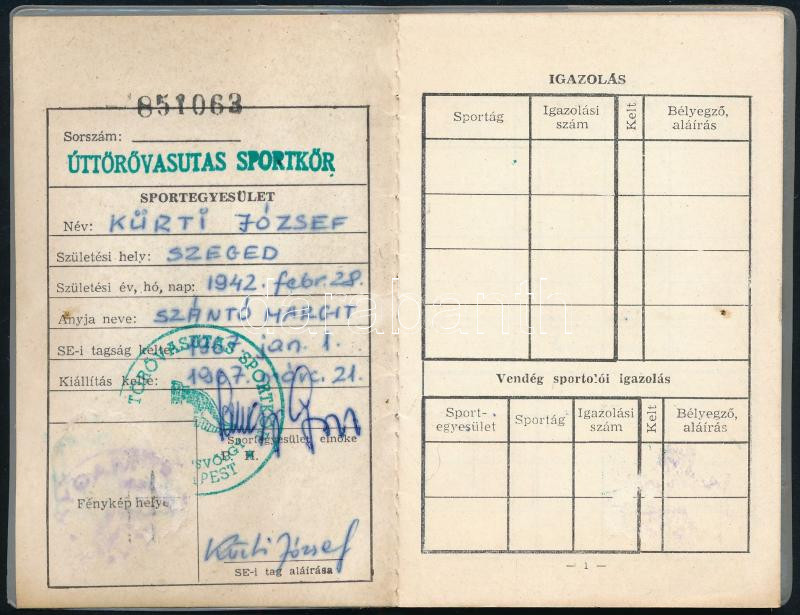 851063
Sorszám:
ÚTTÖRŐVASUTAS SPORTKŐR
SPORTEGYESÜLET
Név: KÜRTI JÓZSEF
Születési hely: SZEGED
Születési év, hó, nap: 1942. febr. 28.
Anyja neve: SZÁNTÓ MARGIT
SE-i tagság kelte: 1967. jan. 1.
Kiállítás kelte: 1967. márc. 21.
Sportegyesület elnöke
P. H.
Fénykép helye
Kürti József
SE-i tag aláírása
IGAZOLÁS
Sportág Igazolási szám Kelt Bélyegző, aláírás
Vendég sportolói igazolás
Sport-egyesület Sportág Igazolási szám Kelt Bélyegző, aláírás
— 1 —
darabanth